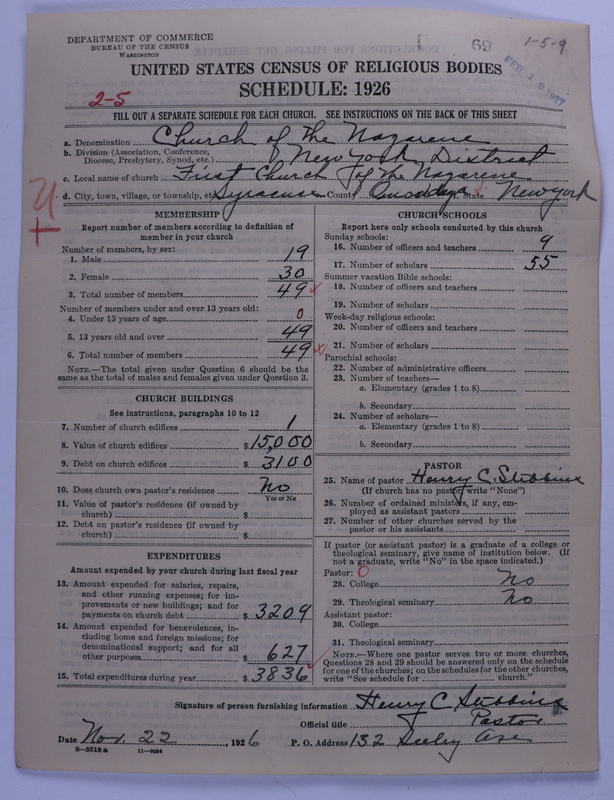 DEPARTMENT OF COMMERCE
BUREAU OF THE CENSUS
WASHINGTON
69
1-5-9
FEB 1 9 1927
UNITED STATES CENSUS OF RELIGIOUS BODIES
SCHEDULE: 1926
2-5
FILL OUT A SEPARATE SCHEDULE FOR EACH CHURCH. SEE INSTRUCTIONS ON THE BACK OF THIS SHEET
a. Denomination Church of the Nazarene
b. Division (Association, Conference, Diocese, Presbytery, Synod, etc.) New York District
c. Local name of church First Church of the Nazarene
d. City, town, village, or township, etc. Syracuse County Onondaga State New York
MEMBERSHIP
Report number of members according to definition of
member in your church
Number of members, by sex:
1. Male 19
2. Female 30
3. Total number of members 49
Number of members under and over 13 years old:
4. Under 13 years of age 0
5. 13 years old and over 49
6. Total number of members 49
NOTE.—The total given under Question 6 should be
same as the total of males and females given under Question 3.
CHURCH BUILDINGS
See instructions, paragraphs 10 to 12
7. Number of church edifices 1
8. Value of church edifices $15,000
9. Debt on church edifices $3100
10. Does church own pastor's residence No
Yes or No
11. Value of pastor's residence (if owned by
church) $
12. Debt on pastor's residence (if owned by
church) $
EXPENDITURES
Amount expended by your church during last fiscal year
13. Amount expended for salaries, repairs,
and other running expenses; for im-
provements or new buildings; and for
payments on church debt $3209
14. Amount expended for benevolences, in-
cluding home and foreign missions; for
denominational support; and for all
other purposes $627
15. Total expenditures during year $3836
CHURCH SCHOOLS
Report here only schools conducted by this church
Sunday schools:
16. Number of officers and teachers 9
17. Number of scholars 55
Summer vacation Bible schools:
18. Number of officers and teachers
19. Number of scholars
Week-day religious schools:
20. Number of officers and teachers
21. Number of scholars
Parochial schools:
22. Number of administrative officers
23. Number of teachers—
a. Elementary (grades 1 to 8)
b. Secondary
24. Number of scholars—
a. Elementary (grades 1 to 8)
b. Secondary
PASTOR
25. Name of pastor Henry C. Stebbins
(If church has no pastor, write "None")
26. Number of ordained ministers, if any, em-
ployed as assistant pastors
27. Number of other churches served by the
pastor or his assistants
If pastor (or assistant pastor) is a graduate of a college or
theological seminary, give name of institution below. (If
not a graduate, write "No" in the space indicated.)
Pastor: 0
28. College No
29. Theological seminary No
Assistant pastor:
30. College
31. Theological seminary
NOTE.—Where one pastor serves two or more churches,
Questions 28 and 29 should be answered only on the schedule
for one of the churches; on the schedules for the other churches,
write "See schedule for church."
Signature of person furnishing information Henry C Stebbins
Official title Pastor
Date Nov. 22, 1926 P. O. Address 132 Seeley Ave
8-5518 a 11-9034